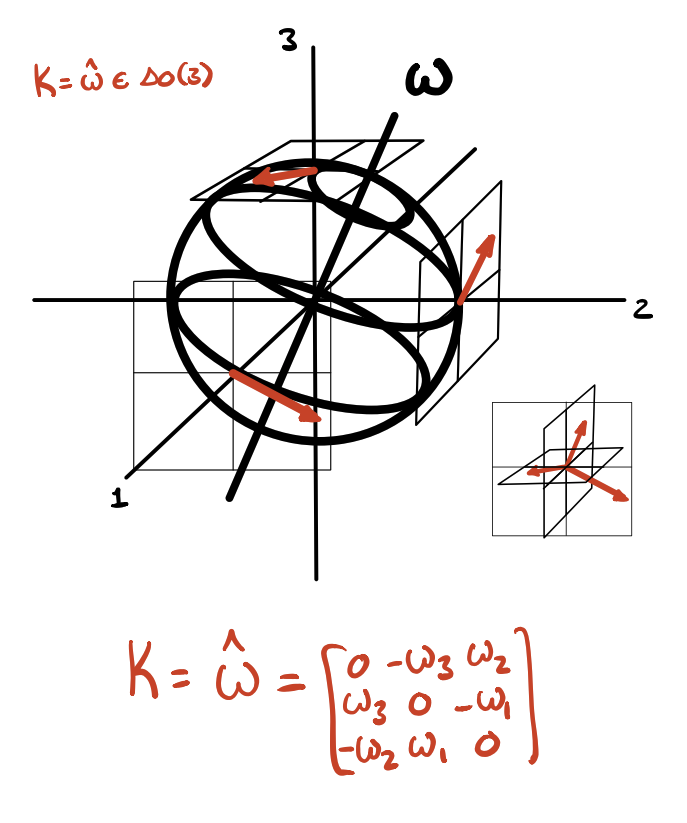 3
ω
K = ω̂ ∈ so(3)
2
1
K = ω̂ = [0 -ω₃ ω₂
ω₃ 0 -ω₁
-ω₂ ω₁ 0]